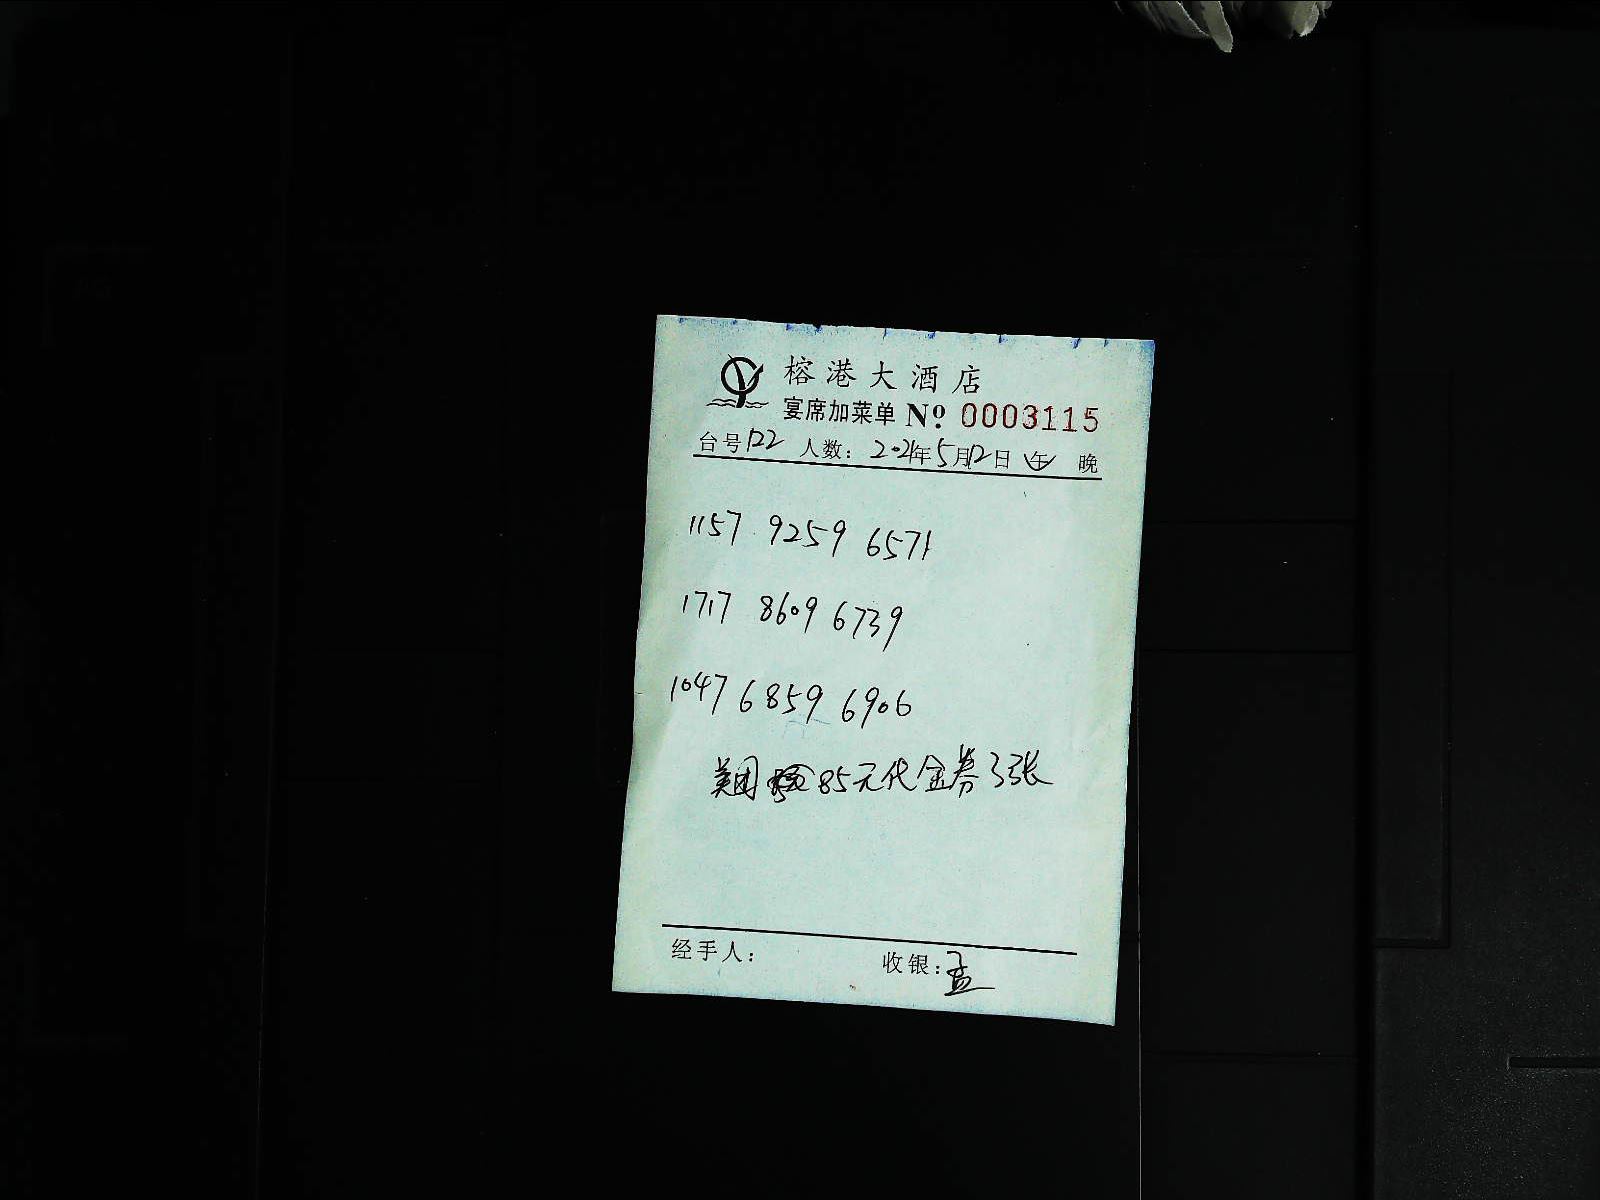 榕港大酒店
宴席加菜单 Nº 0003115
台号122 人数: 2021年5月12日 午 晚
1157 9259 6571
1717 8609 6739
1047 6859 6906
美团 85元代金券3张
经手人: 收银:孟